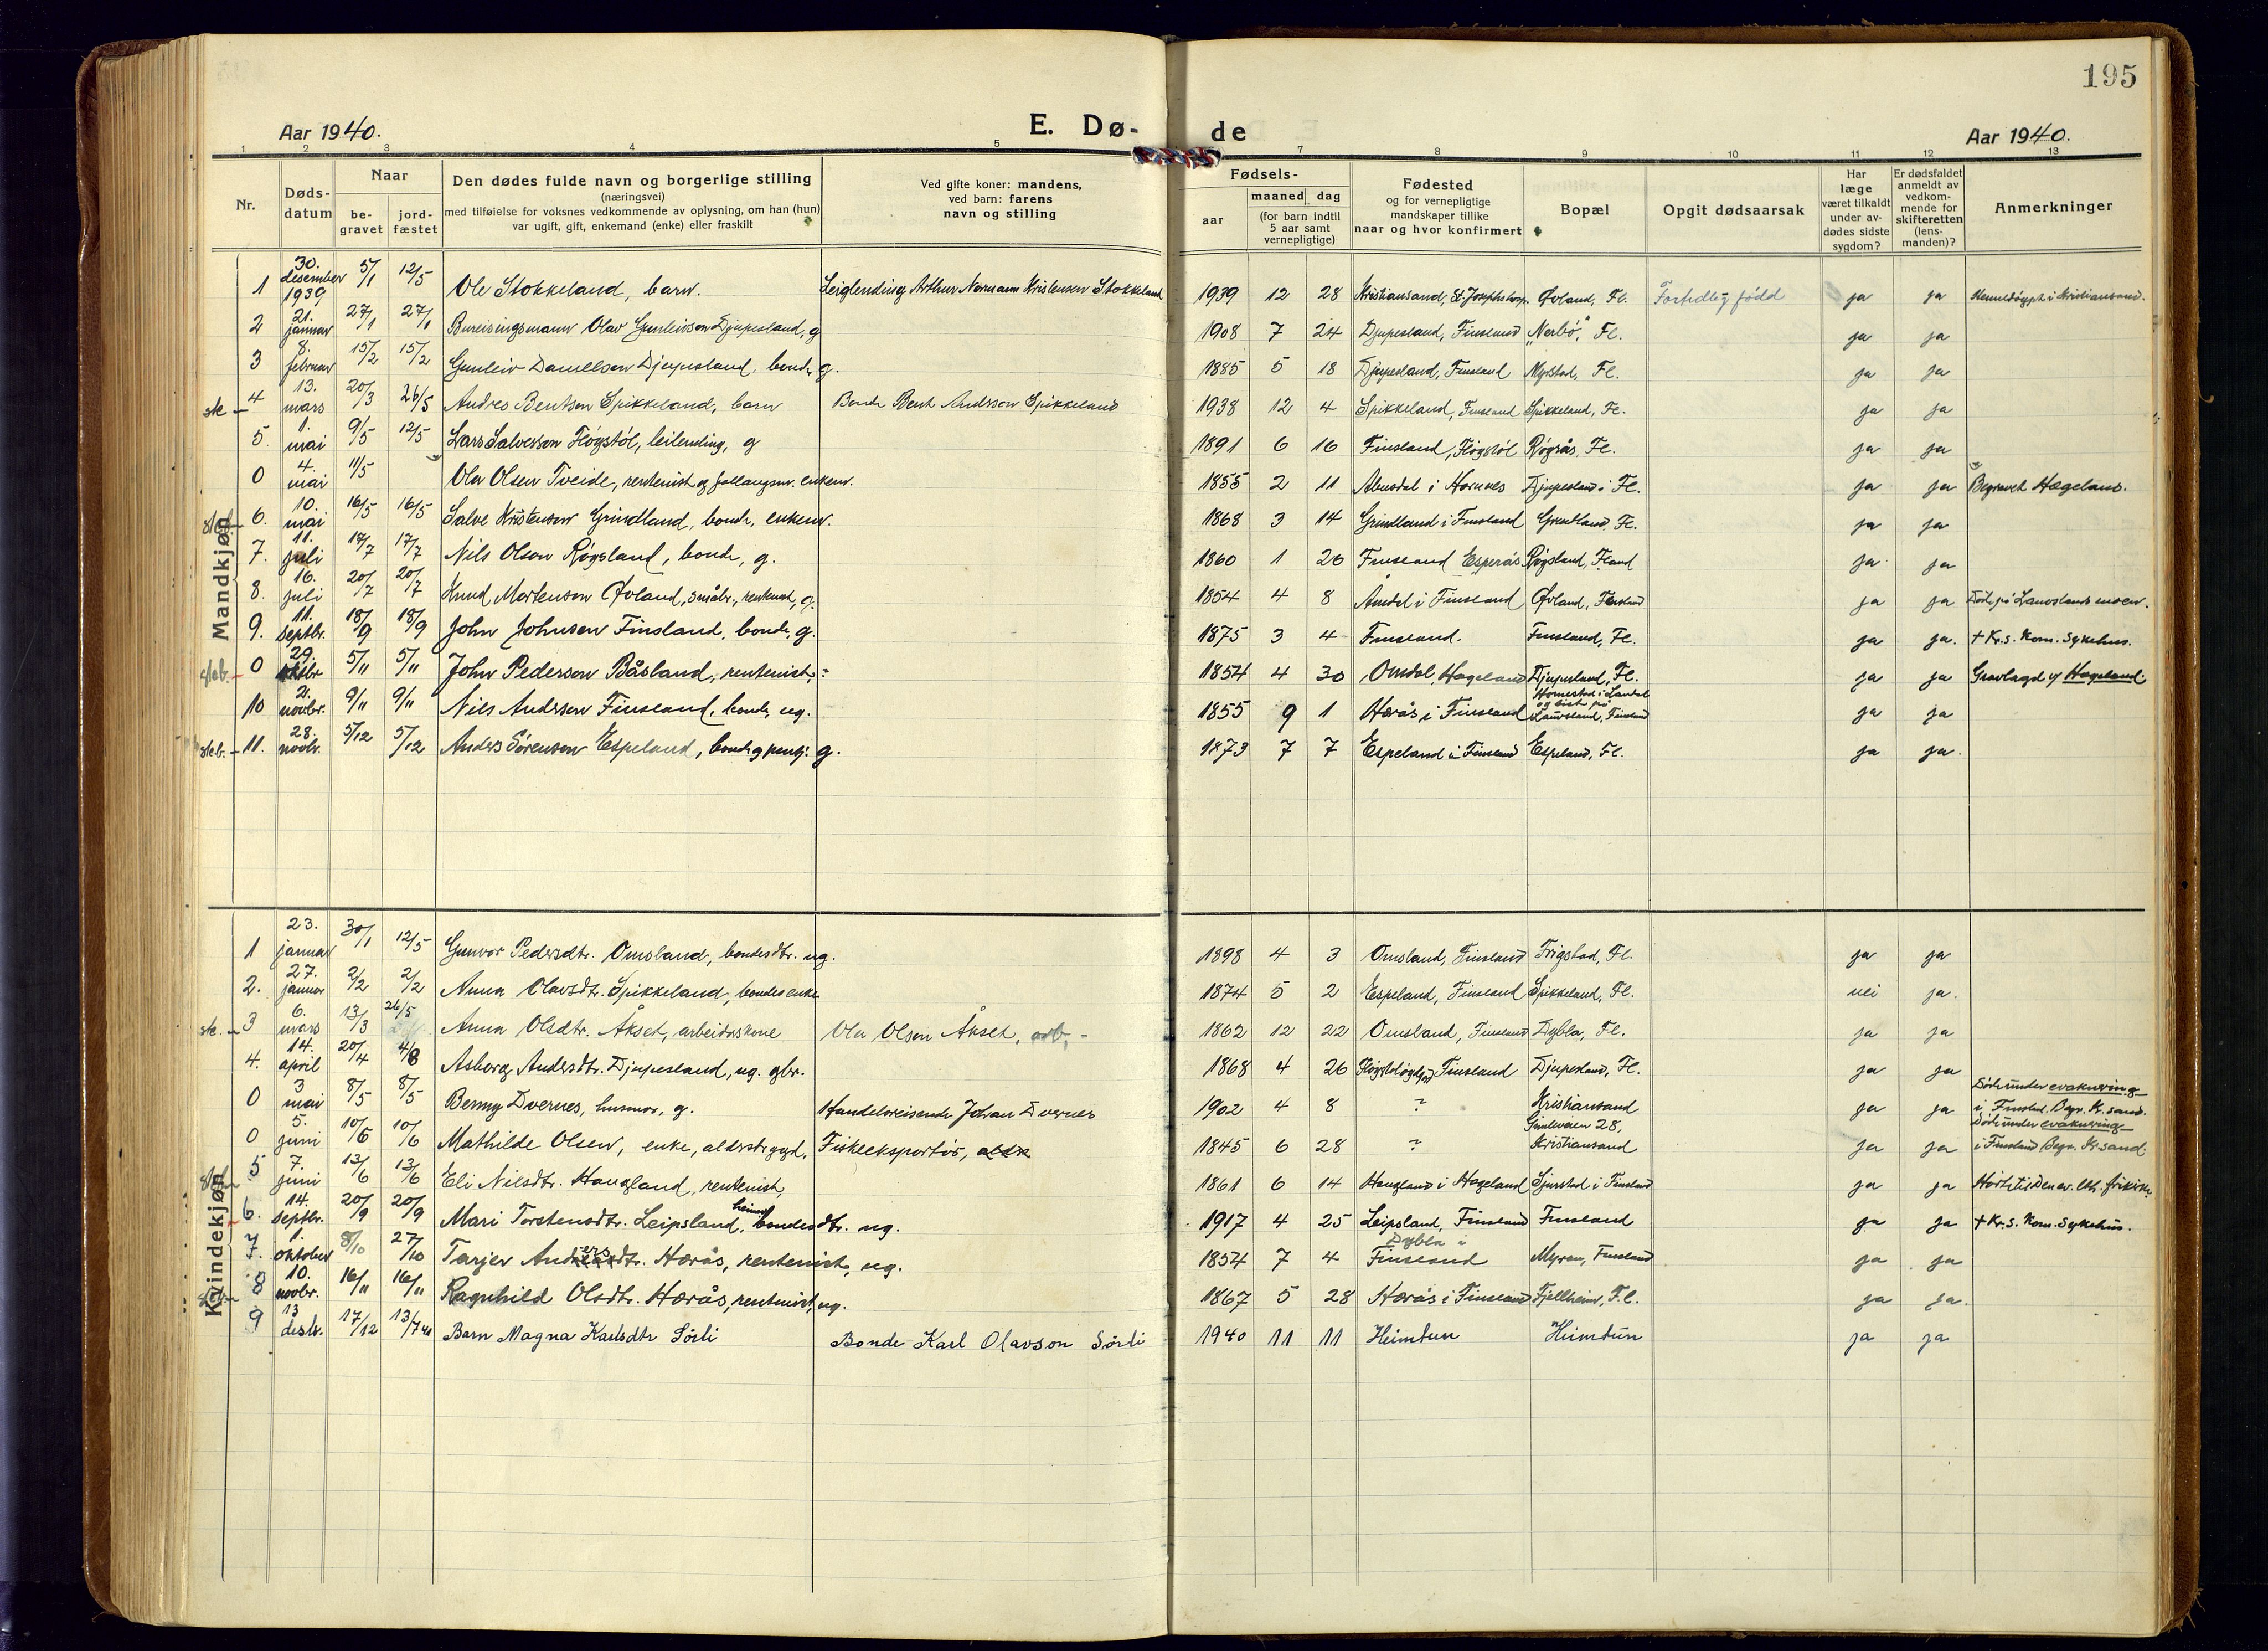 195
Aar 1940.
E. Dø-
de
Aar 1940.
1 2 3 4 5 7 8 9 10 11 12 13
Nr.
Døds-
datum
Naar
be-
gravet
jord-
fæstet
Den dødes fulde navn og borgerlige stilling
(næringsvei)
med tilføielse for voksnes vedkommende av oplysning, om han (hun)
var ugift, gift, enkemand (enke) eller fraskilt
Ved gifte koner: mandens,
ved barn: farens
navn og stilling
Fødsels-
aar
maaned dag
(for barn indtil
5 aar samt
vernepligtige)
Fødested
og for vernepligtige
mandskaper tillike
naar og hvor konfirmert
Bopæl
Opgit dødsaarsak
Har
læge
været tilkaldt
under av-
dødes sidste
sygdom?
Er dødsfaldet
anmeldt av
vedkom-
mende for
skifteretten
(lens-
manden)?
Anmerkninger
Mandkjøn
1 30. desember 1939 5/1 12/5 Ole Stokkeland, barn. Leiglending Arthur Normann Kristensen Stokkeland 1939 12 28 Kristiansand, St. Josephs hosp. Øvland, Fl. Fortidleg fødd ja ja Heimedøypt i Kristiansand.
2 21. januar 27/1 27/1 Bureisingsmann Olav Gunleivson Djupesland, g 1908 7 24 Djupesland, Finsland "Nerbö", Fl. ja ja
3 8. februar 15/2 15/2 Gunleiv Danielson Djupesland, bonde, g. 1885 5 18 Djupesland, Finsland Myrstad, Fl. ja ja
4 13. mars 20/3 26/5 Andres Bentson Spikkeland, barn Bonde Bent Andersson Spikkeland 1938 12 4 Spikkeland, Finsland Spikkeland, Fl. ja ja
5. 1. mai 9/5 12/5 Lars Salveson Fløgstøl, leilending, g 1891 6 16 Finsland, Fløgstøl Røgrås, Fl. ja ja
0 4. mai 11/5 Ola Olsen Tveide, rentenist og enkem. 1855 2 11 i Hornnes Djupesland i Fl. ja ja Begravet Hægeland.
6. 10. mai 16/5 16/5 Salve Kristenson Grindland, bonde, enkem. 1868 3 14 Grindland i Finsland Grindland, Fl. ja ja
7. 11. juli 17/7 17/7 Nils Olson Røgsland, bonde, g. 1860 1 26 Finsland Esperås Røgsland, F.land ja ja
8. 16. juli 20/7 20/7 Knud Mortenson Øvland, småbr., rentenist, g. 1854 4 8 Åmdal i Finsland Øvland, Finsland ja ja Døde på Lauvslandsmoen.
9. 11. septbr. 18/9 18/9 John Johnsen Finsland, bonde, g. 1875 3 4 Finsland. Finsland, Fl. ja ja. + Kr.s. Kom. sykehus.
0 29. oktbr 5/11 5/11 John Pederson Båsland, rentenist, 1854 4 30 Omdal, Hægeland Djupesland, Fl. ja ja Gravlagd y/ Hægeland.
10 2. novbr. 9/11 9/11 Nils Anderson Finsland, bonde, ug. 1855 9 1 Herås i Finsland Homestad i Laudal og sist på Lauvsland, Finsland ja ja
11. 28. novbr. 5/12 5/12 Anders Sørenson Espeland, bonde g. 1873 7 7 Espeland i Finsland Espeland, Fl. ja ja.
Kvindekjøn
1 23. januar 30/1 12/5 Gunvor Pedersdtr. Omsland, bondesdtr. ug. 1898 4 3 Omsland, Finsland Frigstad, Fl. ja ja
2. 27. januar 2/2 2/2 Anna Olavsdtr. Spikkeland, bondes enke 1874 5 2 Espeland, Finsland Spikkeland, Fl. nei ja.
3 6. mars 13/3 26/5 Anna Olsdtr. Åkset, arbeiderskone Ola Olson Åkset, arb. 1862 12 22 Omsland, Finsland Dybla, Fl. ja ja
4. 14. april 20/4 4/8 Asborg Andersdtr. Djupesland, ug. gbr. 1868 4 26 Finsland Djupesland, Fl. ja ja
0 3 mai 8/5 8/5 Benny Dvernes, husmor, g. Handelsreisende Johan Dvernes 1902 4 8 ? Kristiansand ja ja Døde under evakuering i Finsland. Begr. Kr.sand.
0 5. juni 10/6 10/6 Mathilde Olsen, enke, alderstrygd, Fiskeeksportør, 1845 6 28 ? Gimleveien 28, Kristiansand ja ja Døde under evakuering i Finsland Begr. Kr.sand.
5 7. juni 13/6 13/6 Eli Nilsdtr. Haugland, rentenist, 1861 6 14 Haugland i Hægeland Sjurstad i Finsland ja ja Hørte til Den ev. luth. frikirke
6. 14. septbr. 20/9 20/9 Mari Torstensdtr. Leipsland, heime bondesdtr. ug. 1917 4 25 Leipsland, Finsland Finsland ja ja + Kr.s. Kom. Sykehus.
7. 1. oktober 8/10 27/10 Tarjer Andersdtr. Herås, rentenist, ug. 1854 7 4 Dybla i Finsland Myran, Finsland ja ja
8 10. novbr. 16/11 16/11 Ragnhild Olsdtr. Herås, rentenist, ug. 1867 5 28 Herås i Finsland Fjellheim, F.l. ja ja.
9 13 desbr. 17/12 13/7 41 Barn Magna Karlsdtr Sørli Bonde Karl Olavson Sørli 1940 11 11 Heimtun Heimtun ja ja